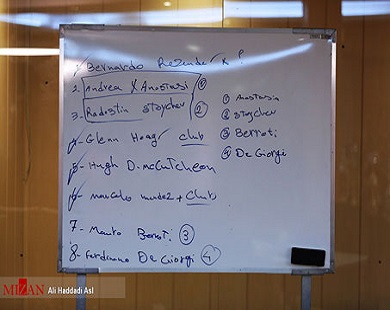 1- Bernardo Rezende x ?
2. Andrea X Anastasi ①
3- Radostin Stoychev ②
4- Glenn Hoag club
5- Hugh D. McCutcheon
6- marcelo mendez + Club
7- Mauro Berroti ③
8- Ferdinando De Giorgi ④
① Anastasia
② Stoychev
③ Berroti
④ De Giorgi
MIZAN Ali Haddadi Asl